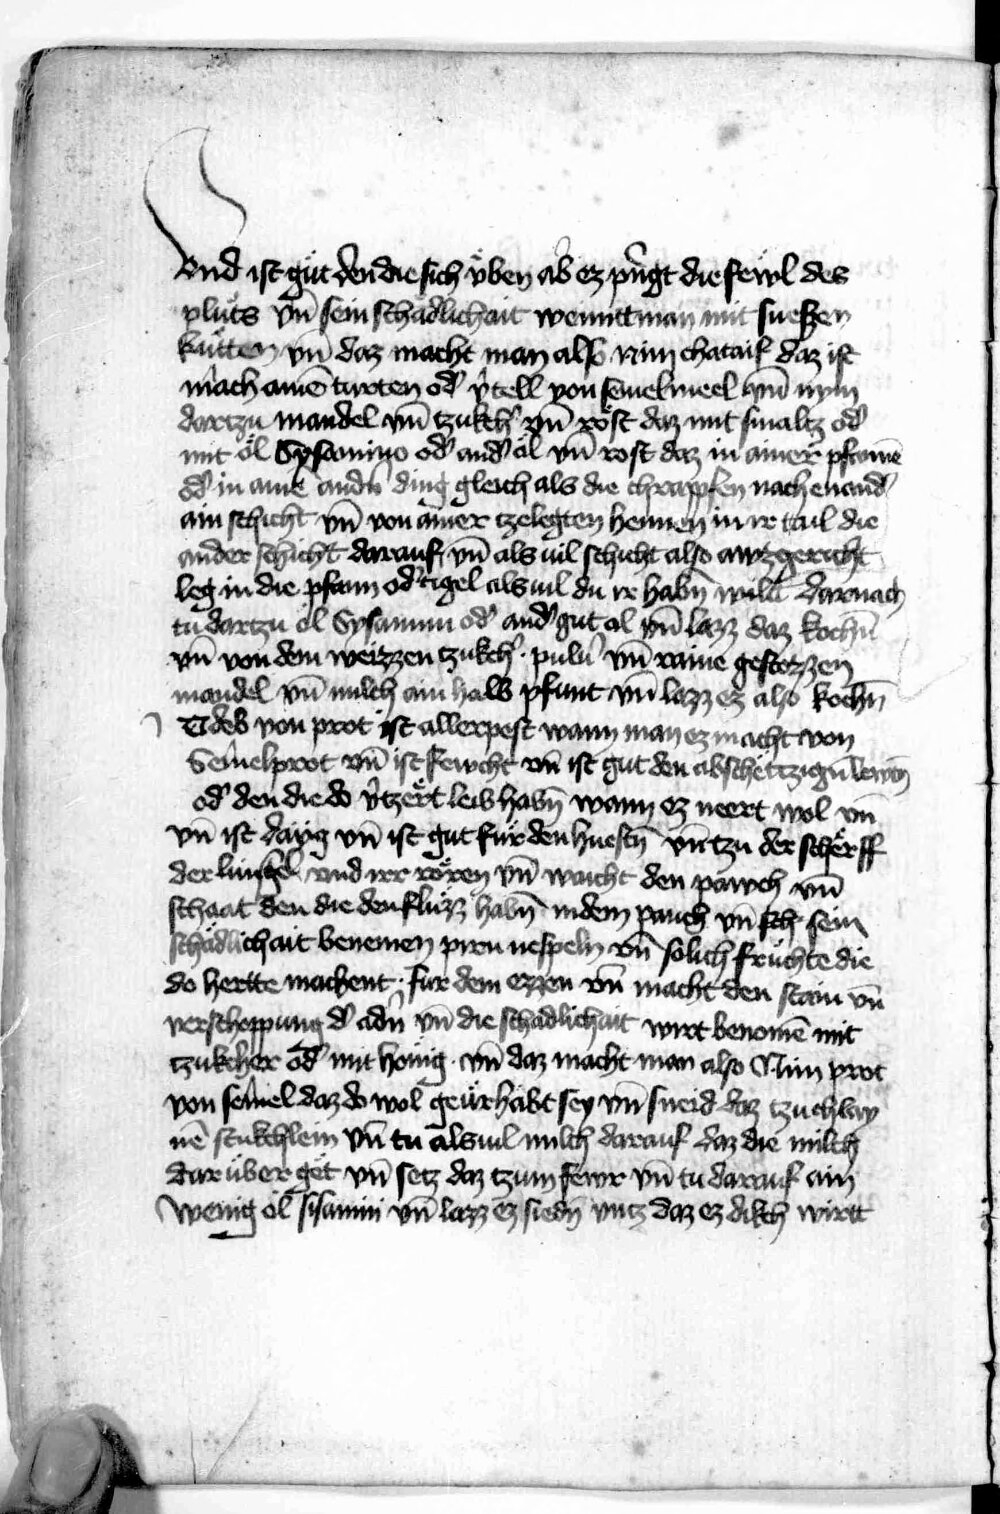 Vnd ist gůt den die sich v̈ben ab̾ ez pringt die fewl des
pluͤts vn̄ sein schadlichait wenimt man mit suezzen
kuͤtten vn̄ daz macht man also Nim chataif daz ist
mach ainē turten od̾ v̾tell von semelmeel vn̄ nym
dartzu mandel vn̄ tzukch̾ vn̄ roͤst daz mit smaltz od̾
mit oͤl Sysamino od̾ and̾ oͤl vn̄ rost daz in ainer pfannē
od̾ in ainē andn̄ ding gleich als die chrapfen nach enand̾
ain schicht vn̄ von ainer tzelegten hennen in ir tail die
ander schicht darauf vn̄ als uil schicht also awzgericht
leg in die pfann od̾ tigel als uil du ir habn̄ wild darnach
tu dartzu oͤl Sysamini od̾ and̾ gut ol vn̄ lazz daz kochn̄
vn̄ von dem weizzen tzukch̾ · pulu̾ vn̄ raine gestozzen
mandel vn̄ milch ain halb pfunt vn̄ lazz ez also kochn̄
von prot ist allerpest wann man ez macht von
Semelprot vn̄ ist fewcht vn̄ ist gut den abschettzign̄ lewtn̄
od̾ den die do v̾tzert leib habn̄ wann ez neert wol vn̄
vn̄ ist dayig vn̄ ist gut fuͤr den huestn̄ vn̄ tzu der scherff
der lungel vnd irr roͤren vn̄ waicht den pawch vn̄
schaat den die den fluͤzz habn̄ in dem pauch vn̄ sein
schaͤdlichait benemen piren nespeln vn̄ solich fruͤchte die
do hertte machent · fur dem ezzen vn̄ macht den stain vn̄
verschoppung d̾ adn̄ vn̄ die schadlichait wirt benomē mit
tzukcher od̾ mit hoͤnig · vn̄ daz macht man also Nim prot
von semel daz do wol geuͤrhabt sey vn̄ sneid daz tzu chlay
nē stukchlein vn̄ tu als uil milch darauf daz die milch
daruͤber get vn̄ setz daz tzum fewr vn̄ tu darauf ain
wenig oͤl sisamini vn̄ lazz ez siedn̄ vntz daz ez dikch wirtt